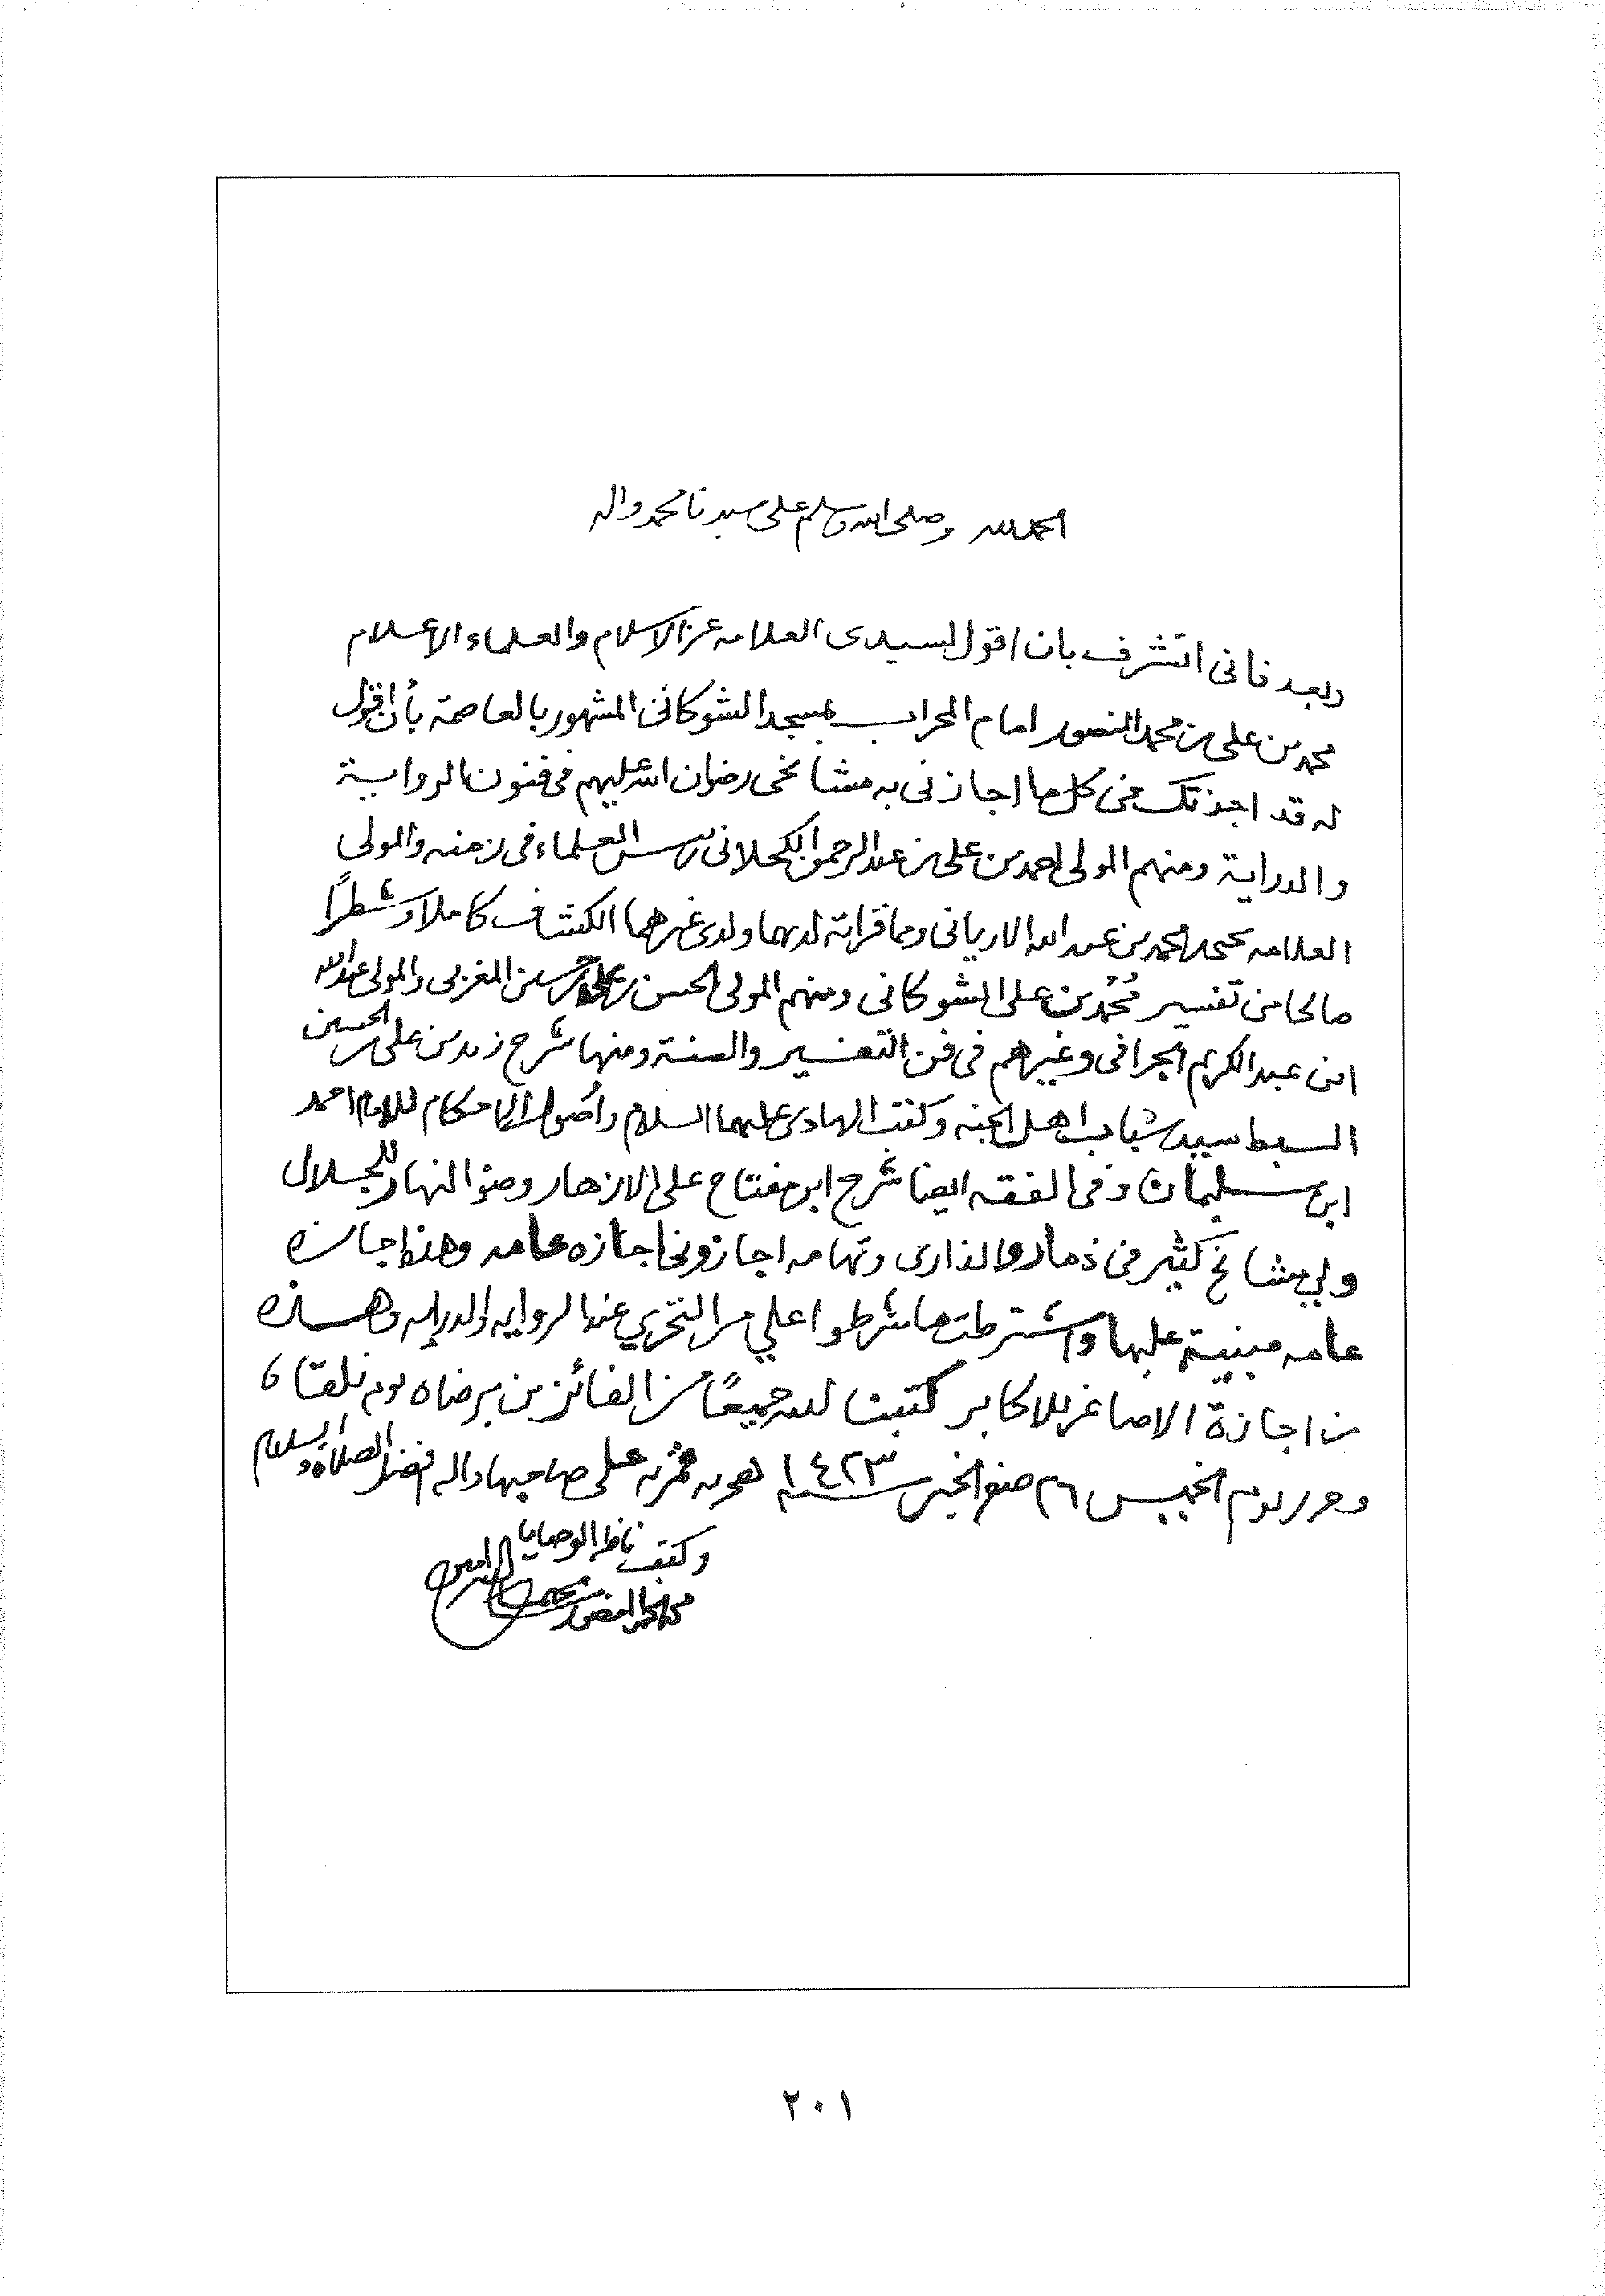 الحمد لله وصلى الله وسلم على سيدنا محمد واله
وبعد فانى اتشرف بان اقول لسيدى العلامه عز الاسلام والعلماء الاعلام
محمد بن على بن محمد المنصور امام المحراب بمسجد الشوكانى المشهور بالعاصمة بأن اقول
له قد اجزتك فى كل ما اجازنى به مشائخى رضوان الله عليهم فى فنون الرواية
والدراية ومنهم المولى احمد بن على بن عبد الرحمن الكحلانى رئيس العلماء فى زمنه والمولى
العلامه يحيى بن محمد بن عبد الله الاريانى ومما قراته لديهما ولدى غيرهما الكشاف كاملا وشطرًا
صالحا من تفسير محمد بن على الشوكانى ومنهم المولى الحسن بن على بن حسين المغربى والمولى عبد الله
ابن عبد الكريم الجرافى وغيرهم فى فن التفسير والسنة ومنها شرح زيد بن على بن الحسين
السبط سيد شباب اهل الجنه وكتب الهادى عليهما السلام وأصول الاحكام للامام احمد
ابن سليمان وفى الفقه ايضا شرح ابن مفتاح على الازهار وضو النهار للجلال
ولي مشائخ كثير فى ذمار والذارى وتهامه اجازونى اجازه عامه وهذه اجازه
عامه مبنية عليها واشترطت ما شرطوا علي من التحري عند الروايه والدرايه وهذه
من اجازة الاصاغر للاكابر كتبنا الله جميعًا من الفائزين برضاه يوم نلقاه
وحرر يوم الخميس ٢٦ صفر الخير سنة ١٤٢٣ هجريه قمريه على صاحبها واله افضل الصلاة والسلام
وكتب ناظر الوصايا
محمد بن محمد المنصور
٢٠١